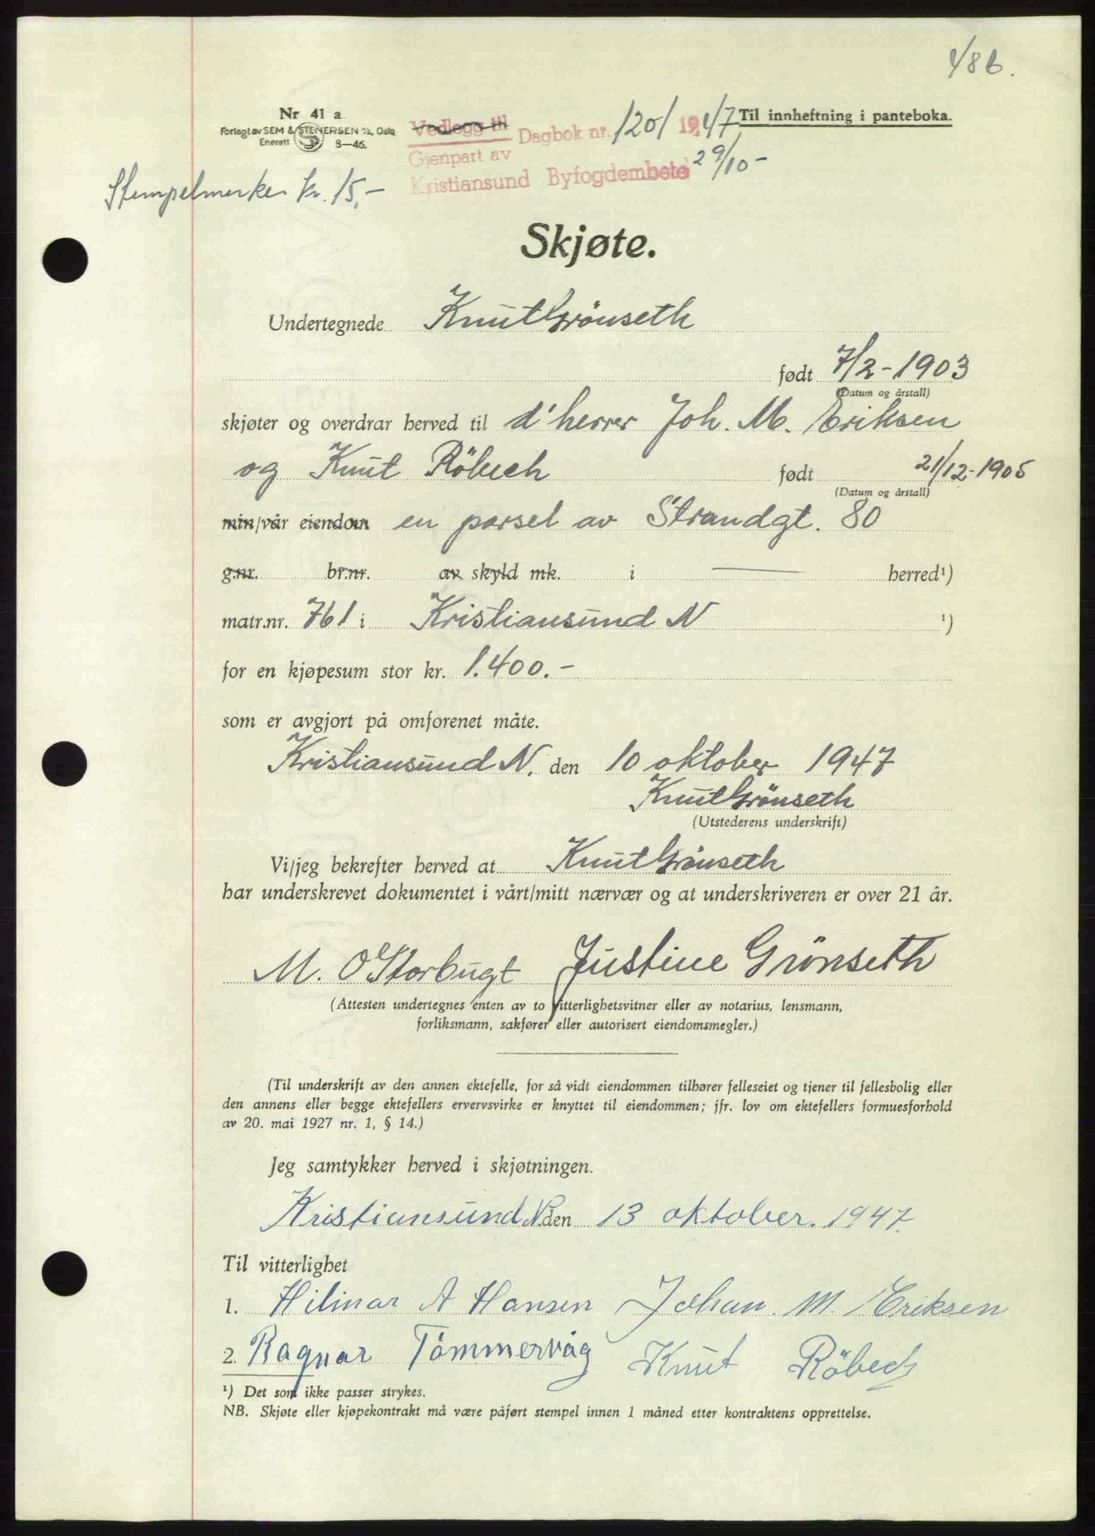 486.
Nr 41 a
Forlagt av SEM & STENERSEN A/S, Oslo
Enerett 8-46.
Vedlegg til
Gjenpart av
Dagbok nr. 1201 1947
Til innheftning i panteboka.
Kristiansund Byfogdembete 29/10-
Stempelmerker kr. 15,-
Skjøte.
Undertegnede Knut Grönseth
født 7/2-1903
(Datum og årstall)
skjøter og overdrar herved til d'herrer Joh. M. Eriksen
og Knut Röbech født 21/12-1905
(Datum og årstall)
min/vår eiendom en parsel av Strandgt. 80
g.nr. br.nr. av skyld mk. i herred¹)
matr.nr. 761 i Kristiansund N ¹)
for en kjøpesum stor kr. 1.400.-
som er avgjort på omforenet måte.
Kristiansund N. den 10 oktober 1947
Knut Grönseth
(Utstederens underskrift)
Vi/jeg bekrefter herved at Knut Grönseth
har underskrevet dokumentet i vårt/mitt nærvær og at underskriveren er over 21 år.
M. O Storbugt Justine Grönseth
(Attesten undertegnes enten av to vitterlighetsvitner eller av notarius, lensmann,
forliksmann, sakfører eller autorisert eiendomsmegler.)
(Til underskrift av den annen ektefelle, for så vidt eiendommen tilhører felleseiet og tjener til fellesbolig eller
den annens eller begge ektefellers ervervsvirke er knyttet til eiendommen; jfr. lov om ektefellers formuesforhold
av 20. mai 1927 nr. 1, § 14.)
Jeg samtykker herved i skjøtningen.
Kristiansund N den 13 oktober. 1947.
Til vitterlighet
1. Hilmar A Hansen Johan. M. Eriksen
2. Ragnar Tömmervåg Knut Röbech
¹) Det som ikke passer strykes.
NB. Skjøte eller kjøpekontrakt må være påført stempel innen 1 måned etter kontraktens opprettelse.